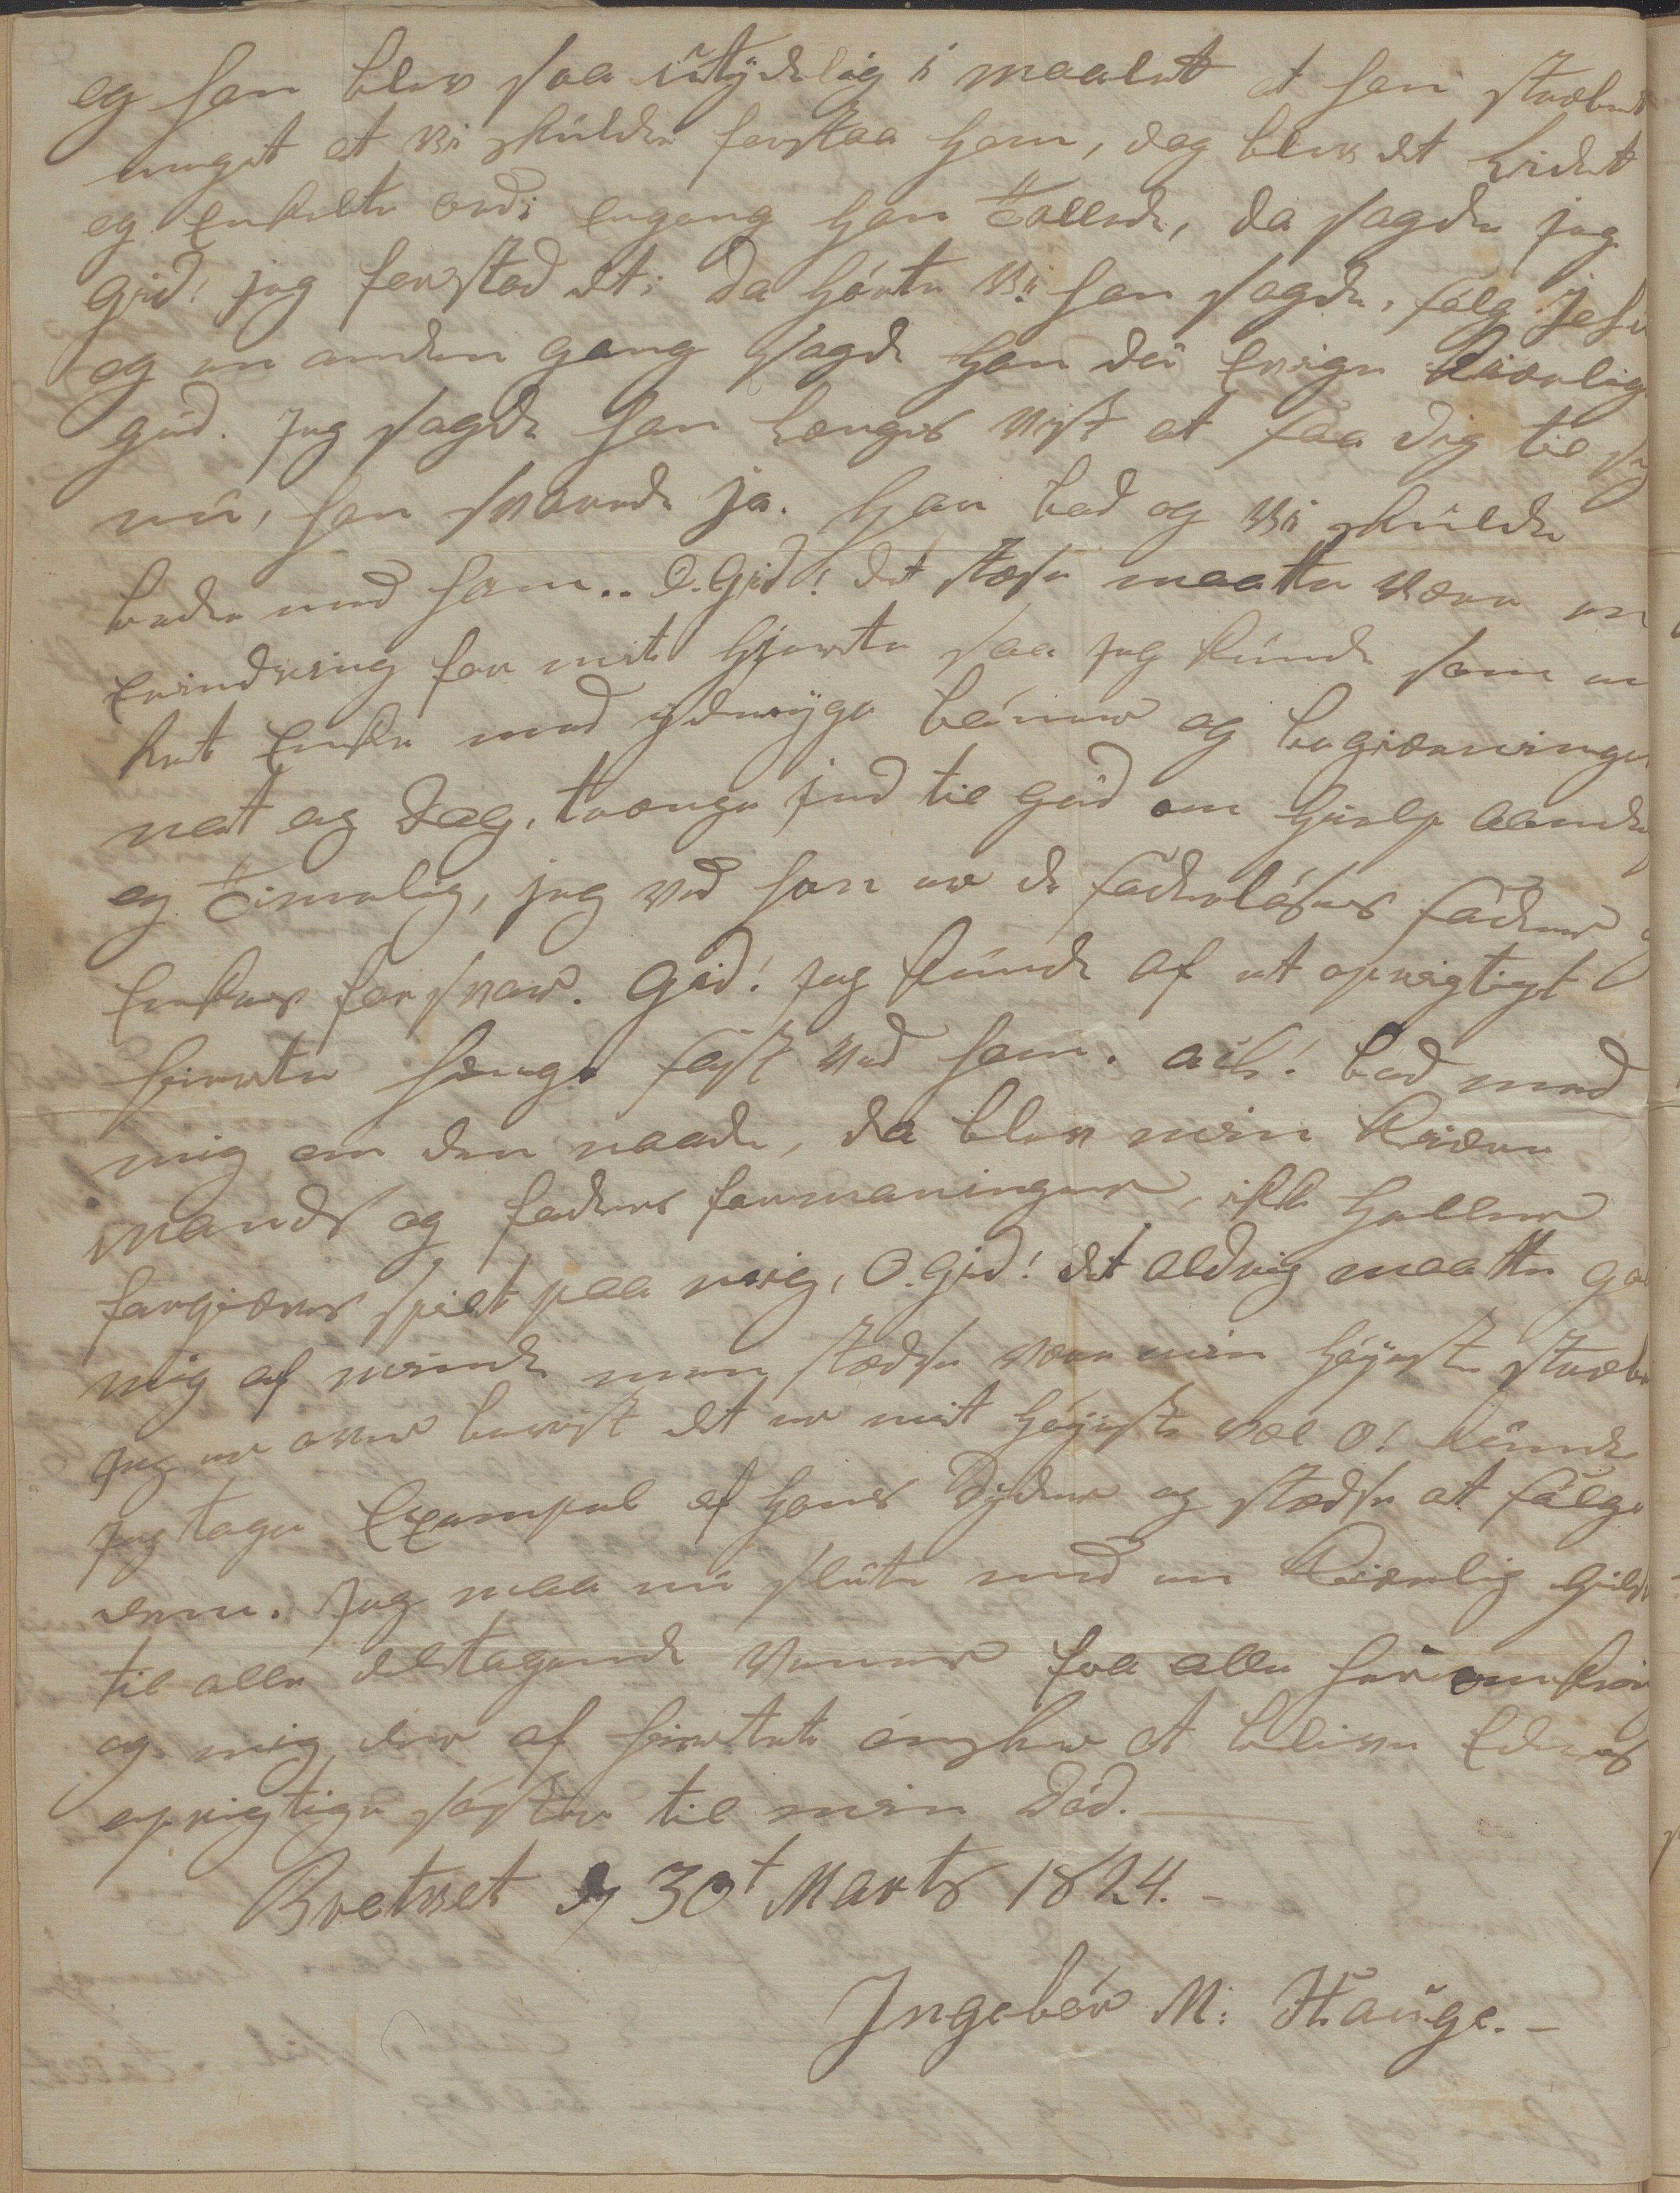 og han blev saa utÿdelig i maalet at han stræbede
meget at vi skulde forstaa ham, dog blev det lidet
og Enkelte ord; Engang han Tallede, da sagde jeg
gid! jeg forstod det; da hórte vi han sagde, følg Jesu
og en anden gang sagde han du Evige kiærlige
gúd. jeg sagde han længes vist at faa dig til sig
nú, han svarede ja. han bad og vi skúlde
bede med ham.. O. Gid! det stæse maatte være en
Erindring for mit hjerte saa jeg kúnde som en
ret Enke med ydmÿge bónner og begiæringer
nat og Dag, trænge ind til gúd om hielp aandelig
og Timelig, jeg ved han er de faderlóses fader og
Enkers forsvar. Gid! jeg kúnde af et oprigtigt
hierte hænge fast ved ham. ach! bed med
mig om den naade, da blev min kiære
mands og faders formaninger, ikke heller
forgiæves spilt paa mig, O. gid! det aldrig maatte gaa
mig af minde men stædse være min hóÿeste stræben
jeg er over bevist det er mit hóÿeste vel O! kúnde
jeg tage Exempel af hans Dÿder og stædse at følge
dem. Jeg maa nú slúte med en kiærlig hilsen
til alle deltagende venner fra alle her omkring
og mig der af hiertet ónsker at blive Eders
oprigtige sóster til min Dód.
Bretvet d 30t Marts 1824.
Ingebór M: Haúge.